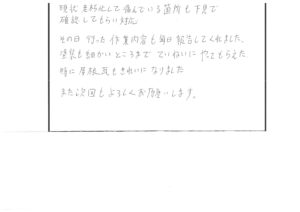 現状 老朽化して傷んでいる箇所も下見で
確認してもらい対応
その日 行った作業内容も毎日報告してくれました。
塗装も細かいところまで ていねいに やってもらえた
時に屋根瓦もきれいになりました
また次回もよろしくお願いします。